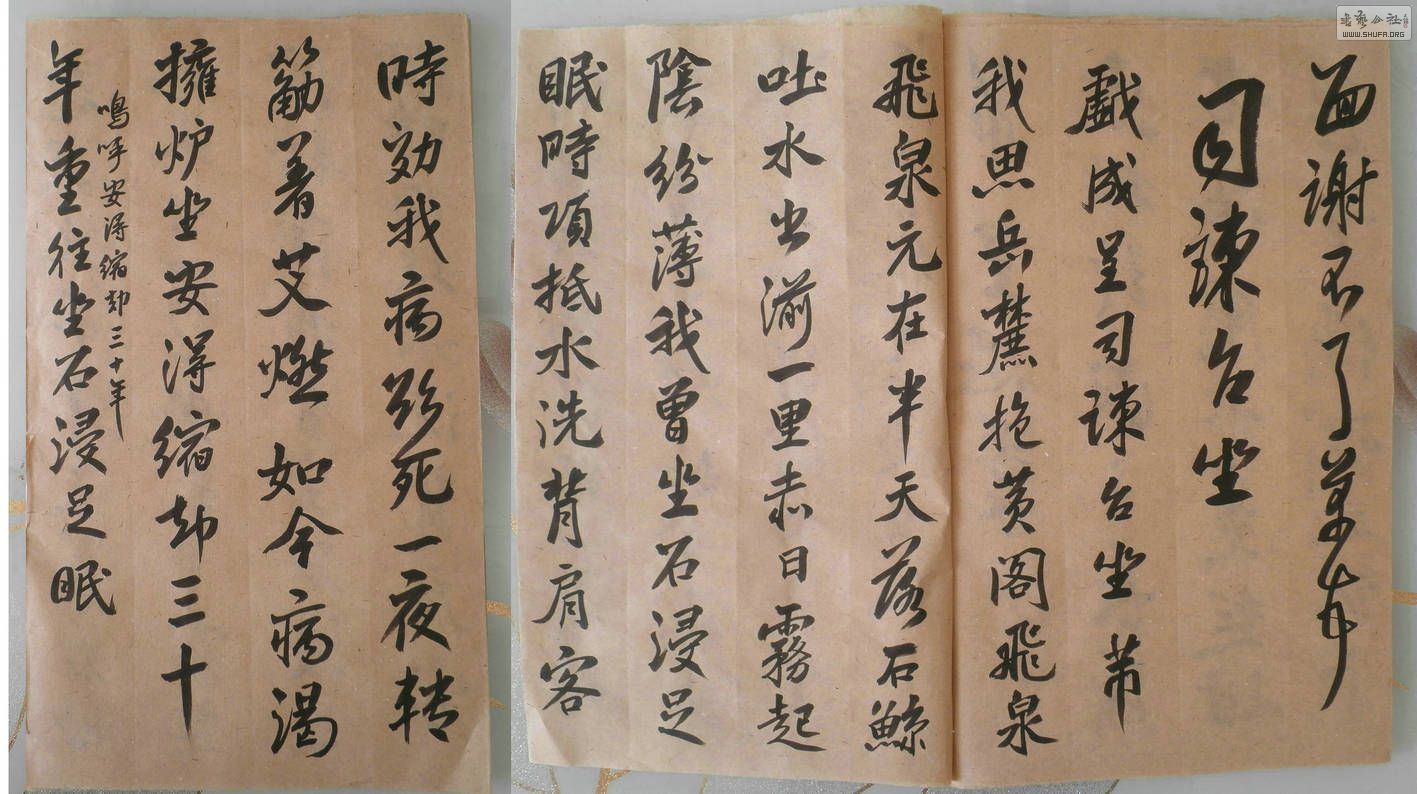 面謝不了
司諫台坐
戲成呈司諫台坐芾
我思岳麓抱黄閣飛泉
飛泉元在半天落石鯨
吐水出湔一里赤日霧起
陰紛薄我曾坐石浸足
眠時項抵水洗背肩客
時効我病欲死一夜轉
筋着艾燃如今病渴
擁炉坐安得縮却三十
嗚呼安得縮却三十年
年重往坐石浸足眠
書藝公社
WWW.SHUFA.ORG